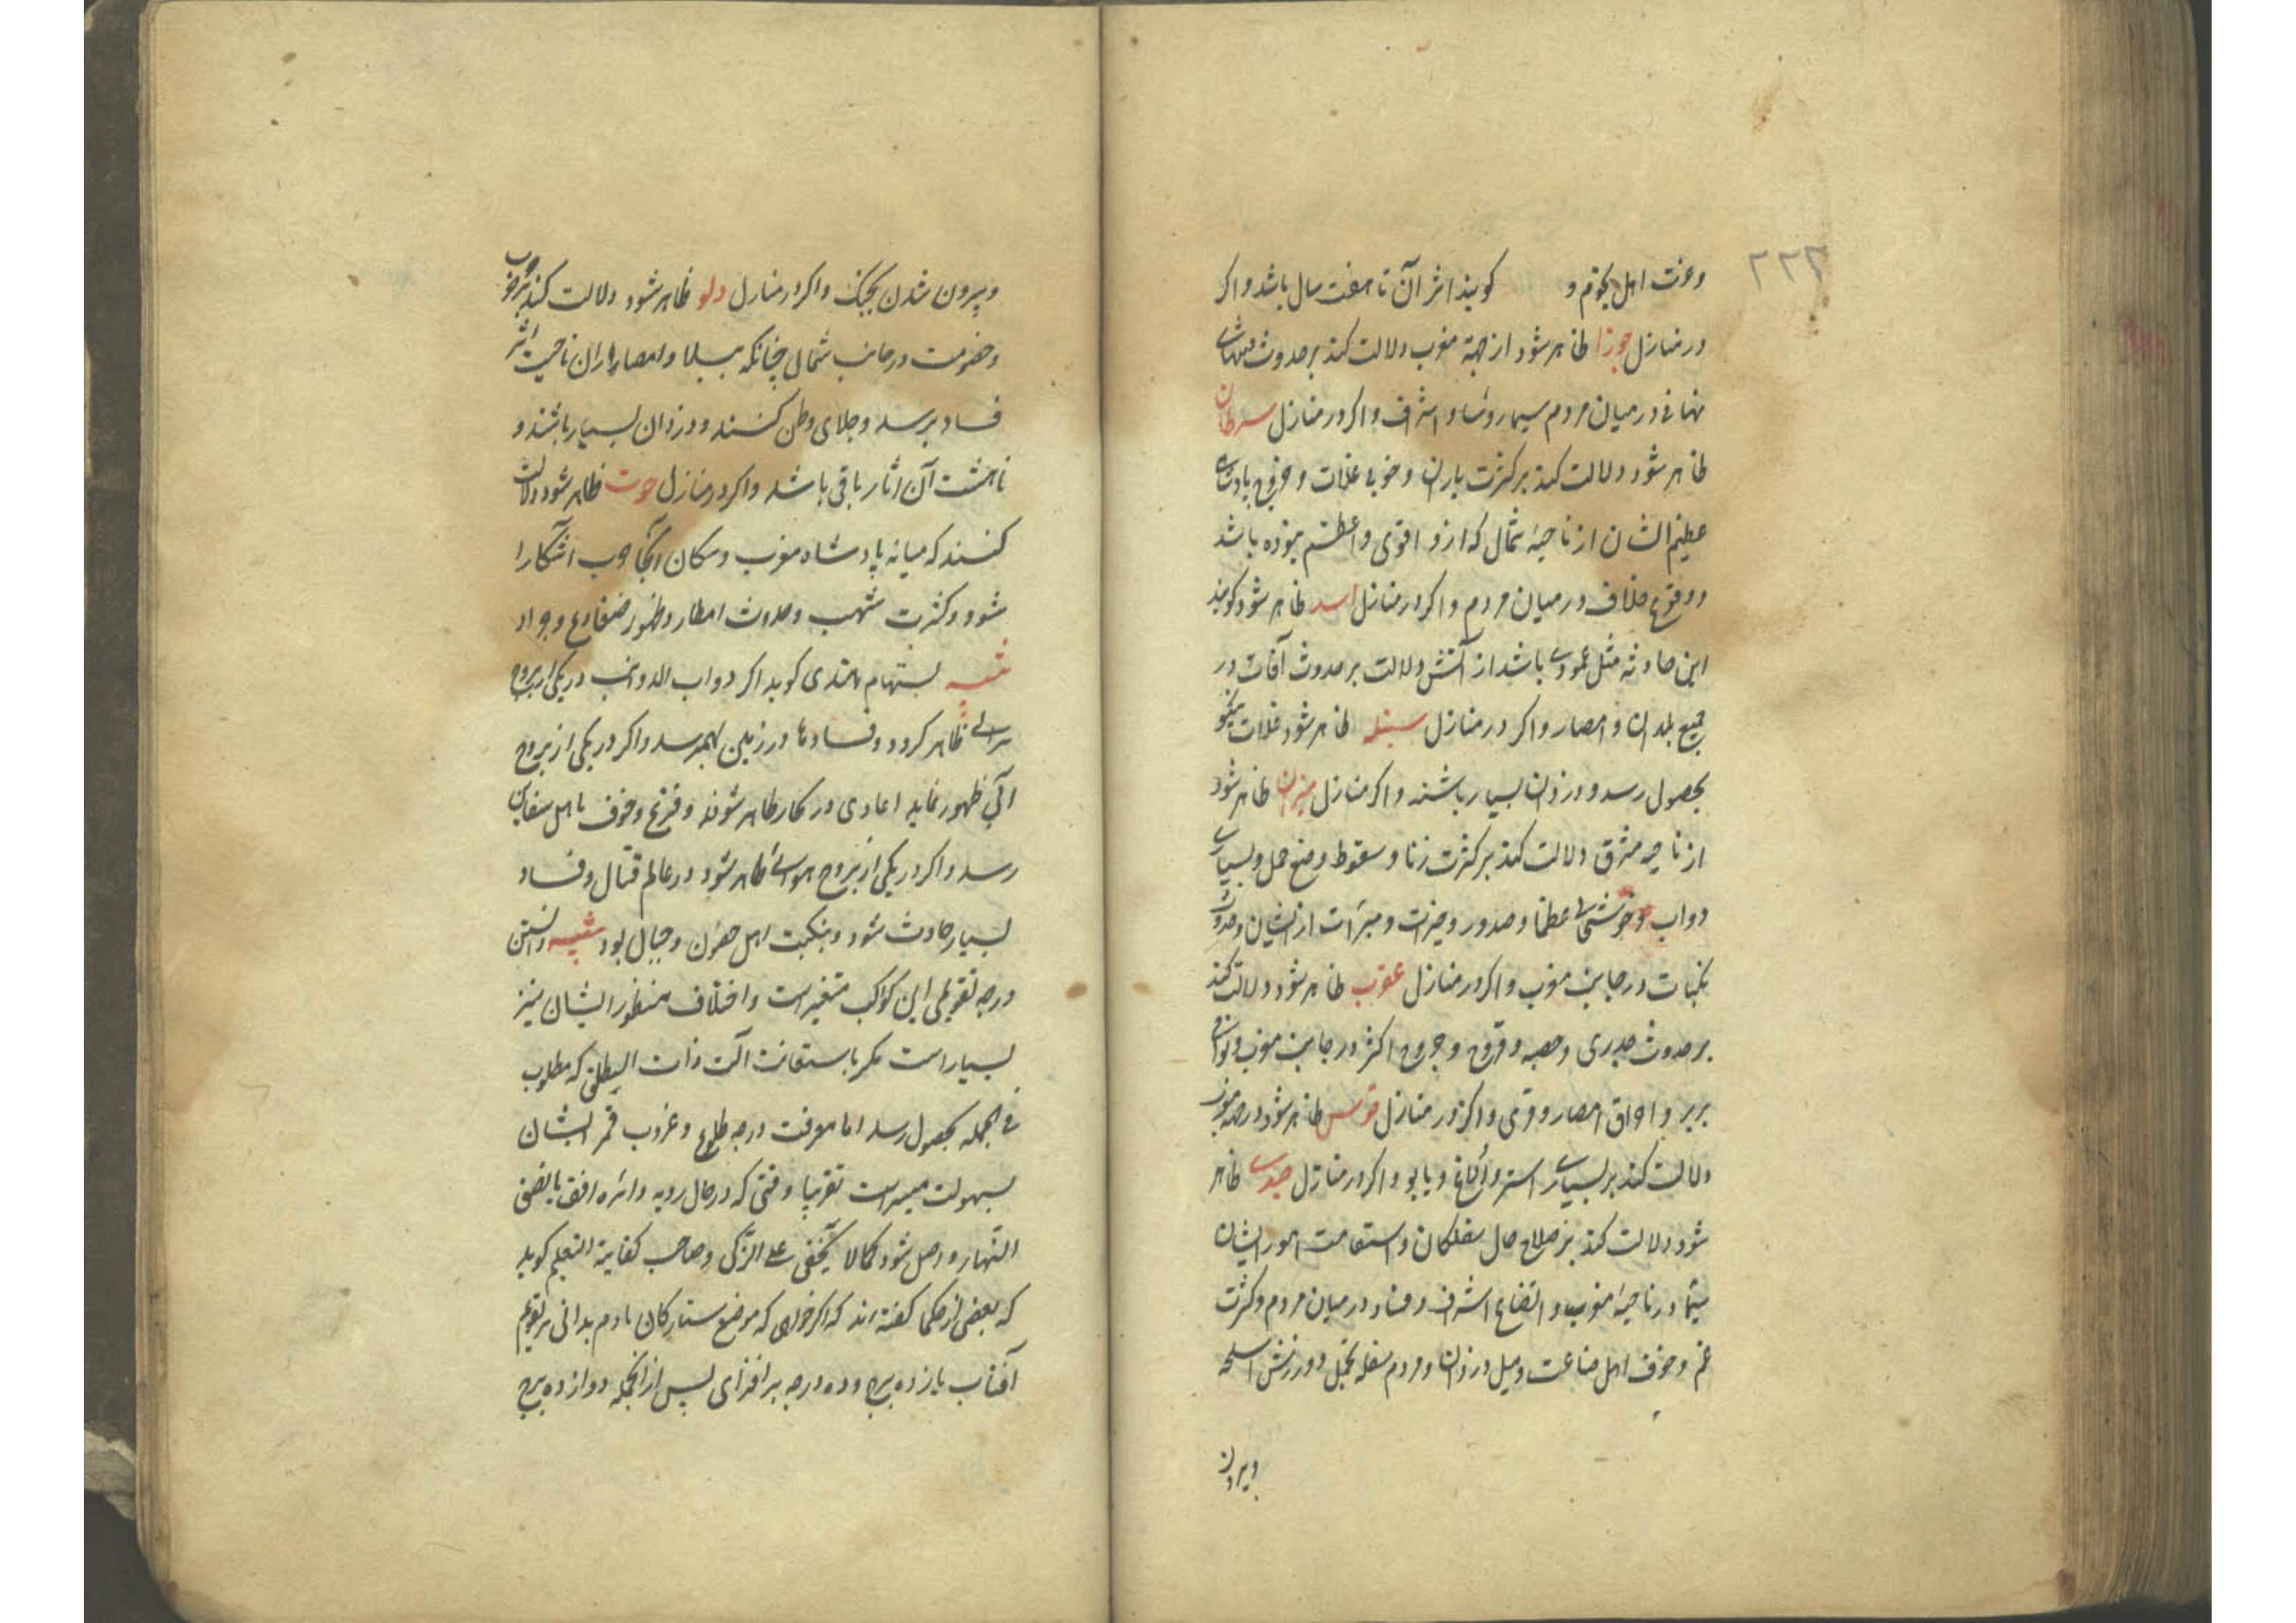 ۲۲۳
وعزت اهل نجوم و کویند اثر آن تا هفت سال باشد واکر
در منازل جوزا ظاهر شود از جهة مغرب دلالت کند بر حدوث
در میان مردم سیما رؤسا و اشراف واکر در منازل سرطان
ظاهر شود دلالت کند بر کثرت باران وخوبی غلات و خروج پادشاهی
عظیم الشان از ناحیهٔ شمال که ازو اقوی واعظم نبوده باشد
ووقوع خلاف در میان مردم واکر در منازل اسد ظاهر شود کویند
این حادثه مثل عمودی باشد از آتش دلالت بر حدوث آفات در
جمیع بلدان و امصار واکر در منازل سنبله ظاهر شود غلات نیکو
بحصول رسد ودزدان بسیار باشند واکر منازل میزان ظاهر شود
از ناحیه مشرق دلالت کند بر کثرت زنا و سقوط وضع حمل وبسیاری
دواب وخوشی عظما وصدور وخیرات ومبرات از ایشان وحدوث
نکبات در جانب مغرب واکر در منازل عقرب ظاهر شود دلالت کند
بر حدوث جدری وحصبه وقروح وجروح اکثر در جانب مغرب ونواحی
بربر و احراق امصار وقری واکر در منازل قوس ظاهر شود در جهة مغرب
دلالت کند بر بسیاری استر والاغ ویابو واکر در منازل جدی ظاهر
شود دلالت کند بر صلاح حال سفلکان واستقامت امور ایشان
سیّما در ناحیهٔ مغرب و اتضاع اشراف وفساد در میان مردم وکثرت
غم وخوف اهل صناعت ومیل دزدان ومردم سفله بخیل وورزش اسلحه
وبیرون
وبیرون شدن بجنک واکر در منازل دلو ظاهر شود دلالت کند بر حرب
وخصومت در جانب شمال چنانکه ببلاد وامصار ایران ناحیت اثر
فساد برسد وجلای وطن کنند ودزدان بسیار باشند و
تا هشت آن اثار باقی باشد واکر در منازل حوت ظاهر شود دلالت
کنند که میانه پادشاه مغرب وسکان آنجا حرب آشکارا
شود وکثرت شهب وحدوث امطار وظهور ضفادع وجراد
تنبیه بستهام هندی کوید اکر ذوات الذوانب در یکی از بروج
ظاهر کردد وفسادها در زمین بهمرسد واکر در یکی از بروج
آبی ظهور نماید اعادی در کار ظاهر شوند وفزع وخوف باهل سفاین
رسد واکر در یکی از بروج هوائی ظاهر شود در عالم قتال وفساد
بسیار حادث شود وبنکبت اهل حزن وجبال بود تنبیه دانستن
درجه تقویمی این کواکب متغیر است واختلاف منظور ایشان نیز
بسیار است مکر باستعانت آلت ذات که مطلوب
فی الجمله بحصول رسد اما معرفت درجه طلوع وغروب ایشان
بسهولت میسر است تقریبا وقتی که در حال رویه دائره افق بانصف
النهار واصل شود کما لا یخفی علی الزکی وصاحب کفایة التعلیم کوید
که بعضی از حکما کفته اند که اکر خواهی که موضع ستارکان بادم بدانی بر تقویم
آفتاب یازده برج وده درجه بر افزای پس از انجمله دوازده برج